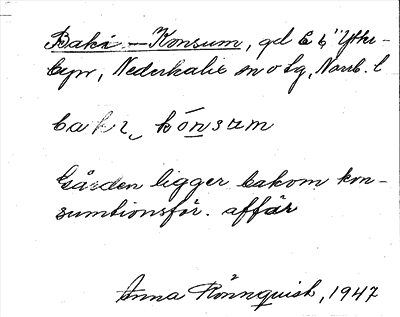 Baki-Konsum, gd
Nederkalix sn o tg, Norrb. l
baki kónsum
Gården ligger bakom kon-
sumtionsför. affär
Anna Rönnquist, 1947